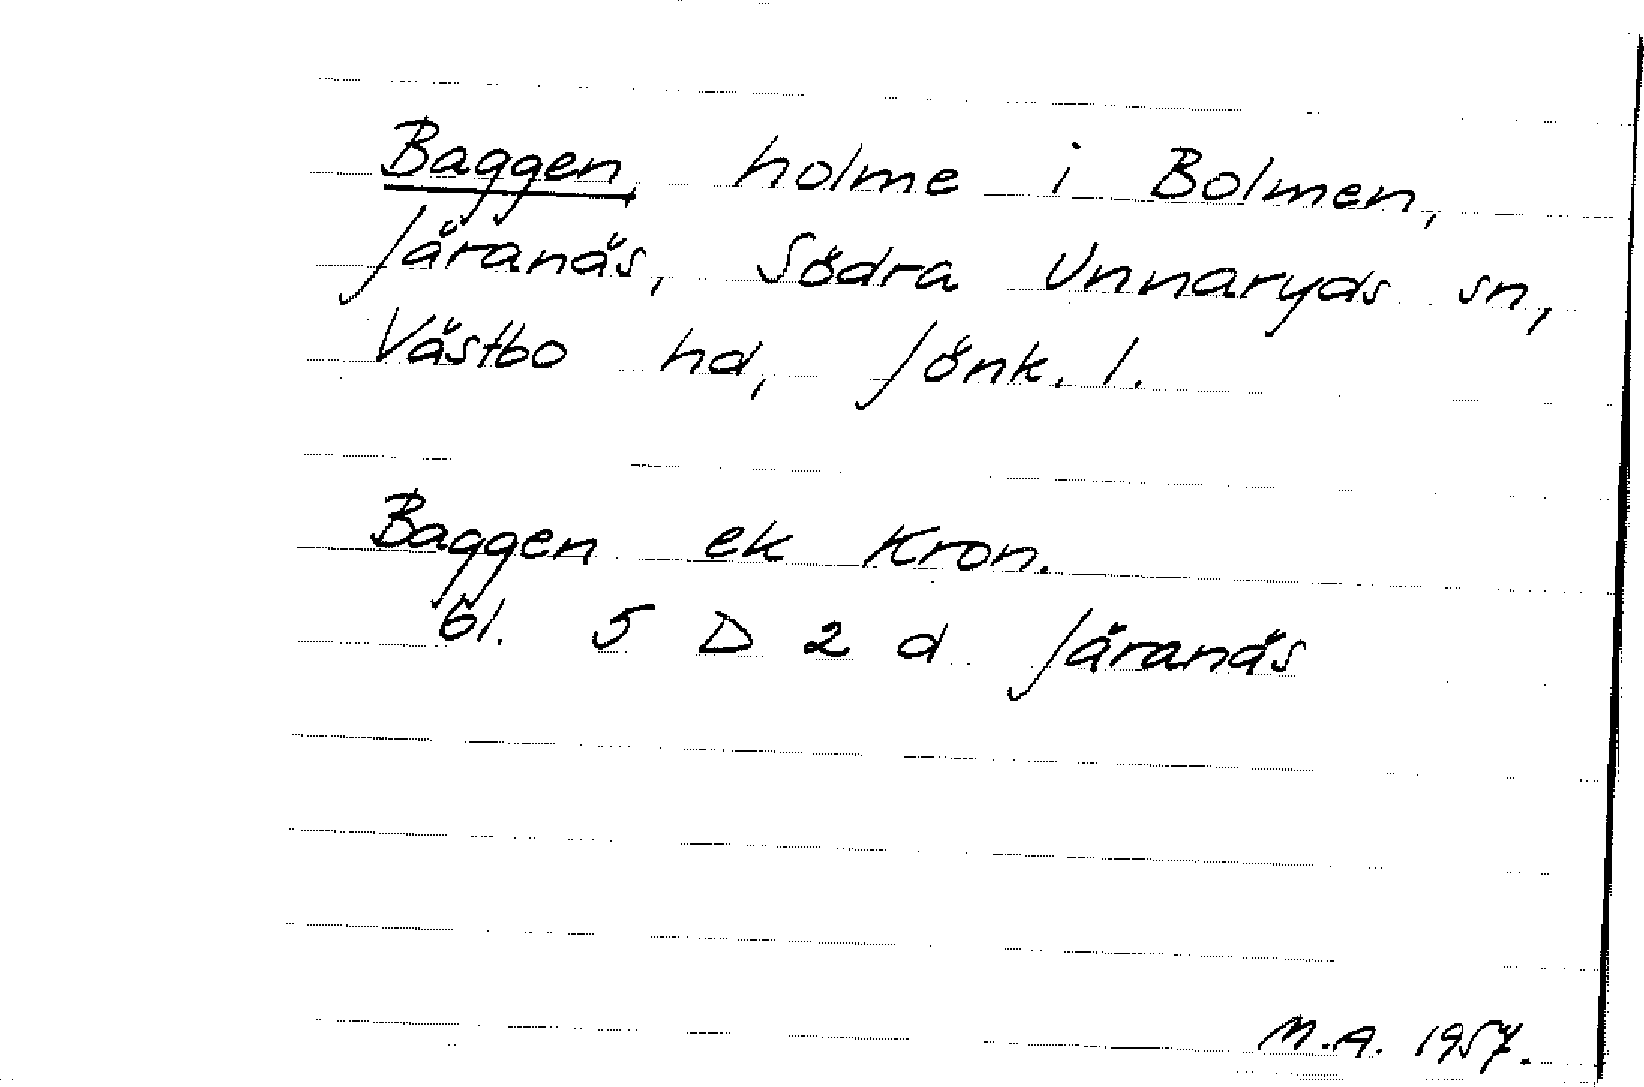 Baggen, holme i Bolmen,
Järanäs, Södra Unnaryds sn,
Västbo hd, Jönk. l.
Baggen ek Kron.
bl. 5 D 2 d Järanäs
M.A. 1957.